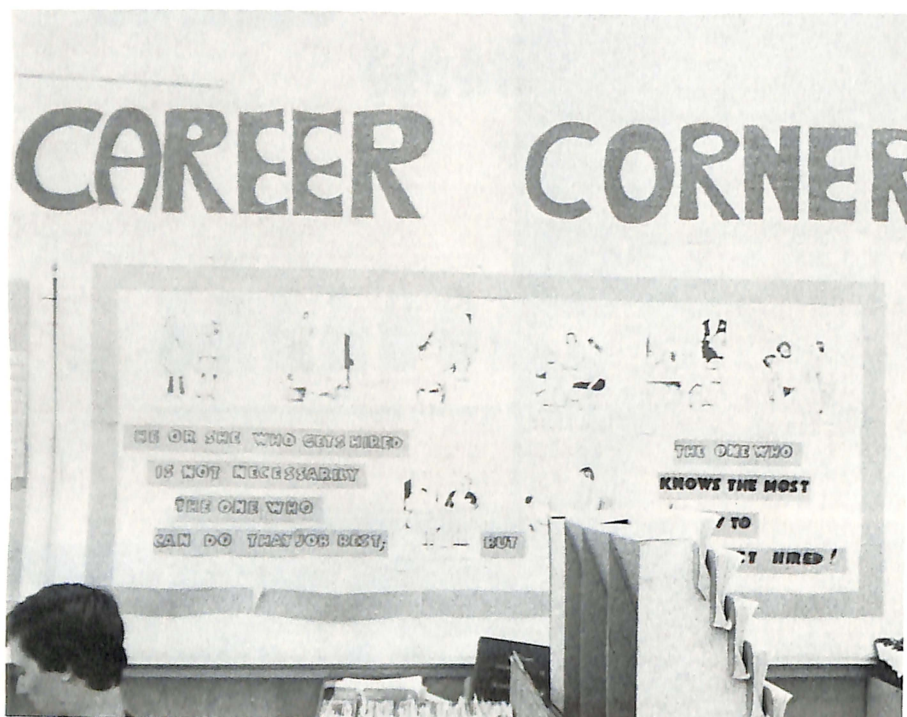 CAREER CORNER
HE OR SHE WHO GETS HIRED
IS NOT NECESSARILY
THE ONE WHO
CAN DO THAT JOB BEST;
BUT
THE ONE WHO
KNOWS THE MOST
TO
HIRED!